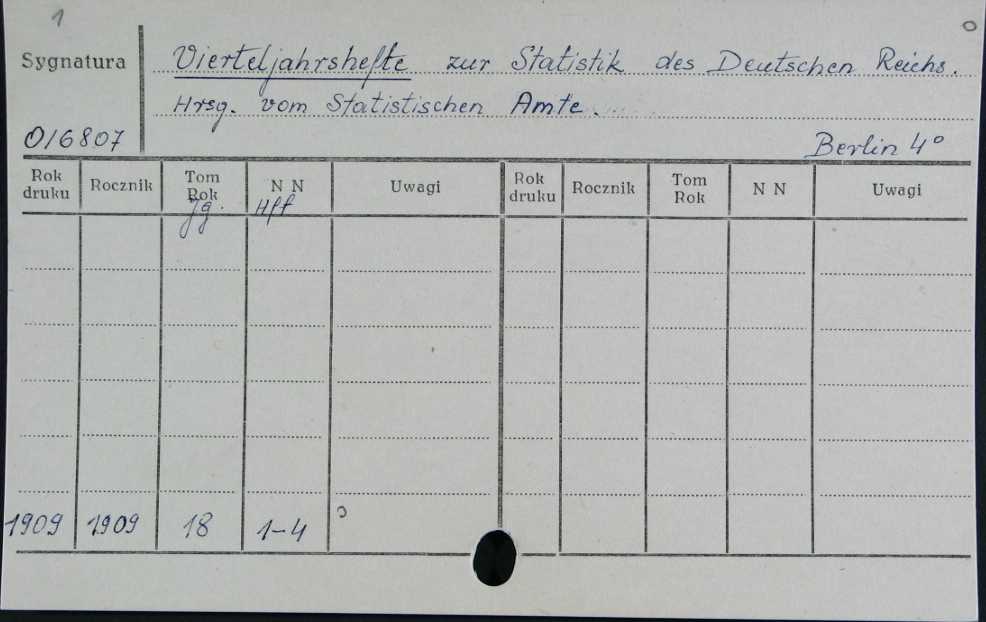 1
Sygnatura
Vierteljahrshefte zur Statistik des Deutschen Reichs.
Hrsg. vom Statistischen Amte.
016807
Berlin 4°
Rok druku Rocznik Tom Rok N N Uwagi Rok druku Rocznik Tom Rok N N Uwagi
Jg. Hff
1909 1909 18 1-4